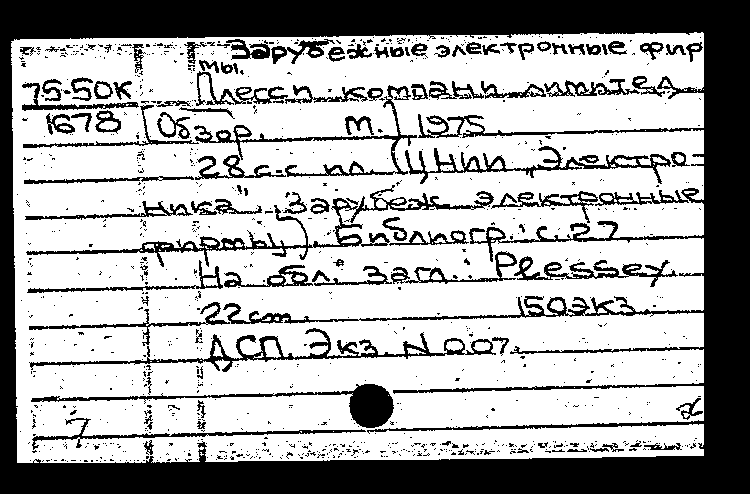 Зарубежные электронные фир
мы.
75-50К Плесси компани лимител
1678 [Обзор. М.] 1975.
28 с.с ил. (ЦНИИ „Электро-
ника". Зарубеж электронные
фирмы). Библиогр.: с. 27
На обл. загл.: Plessey.
22 cm. 150экз.
ДСП. Экз. N 007.
7